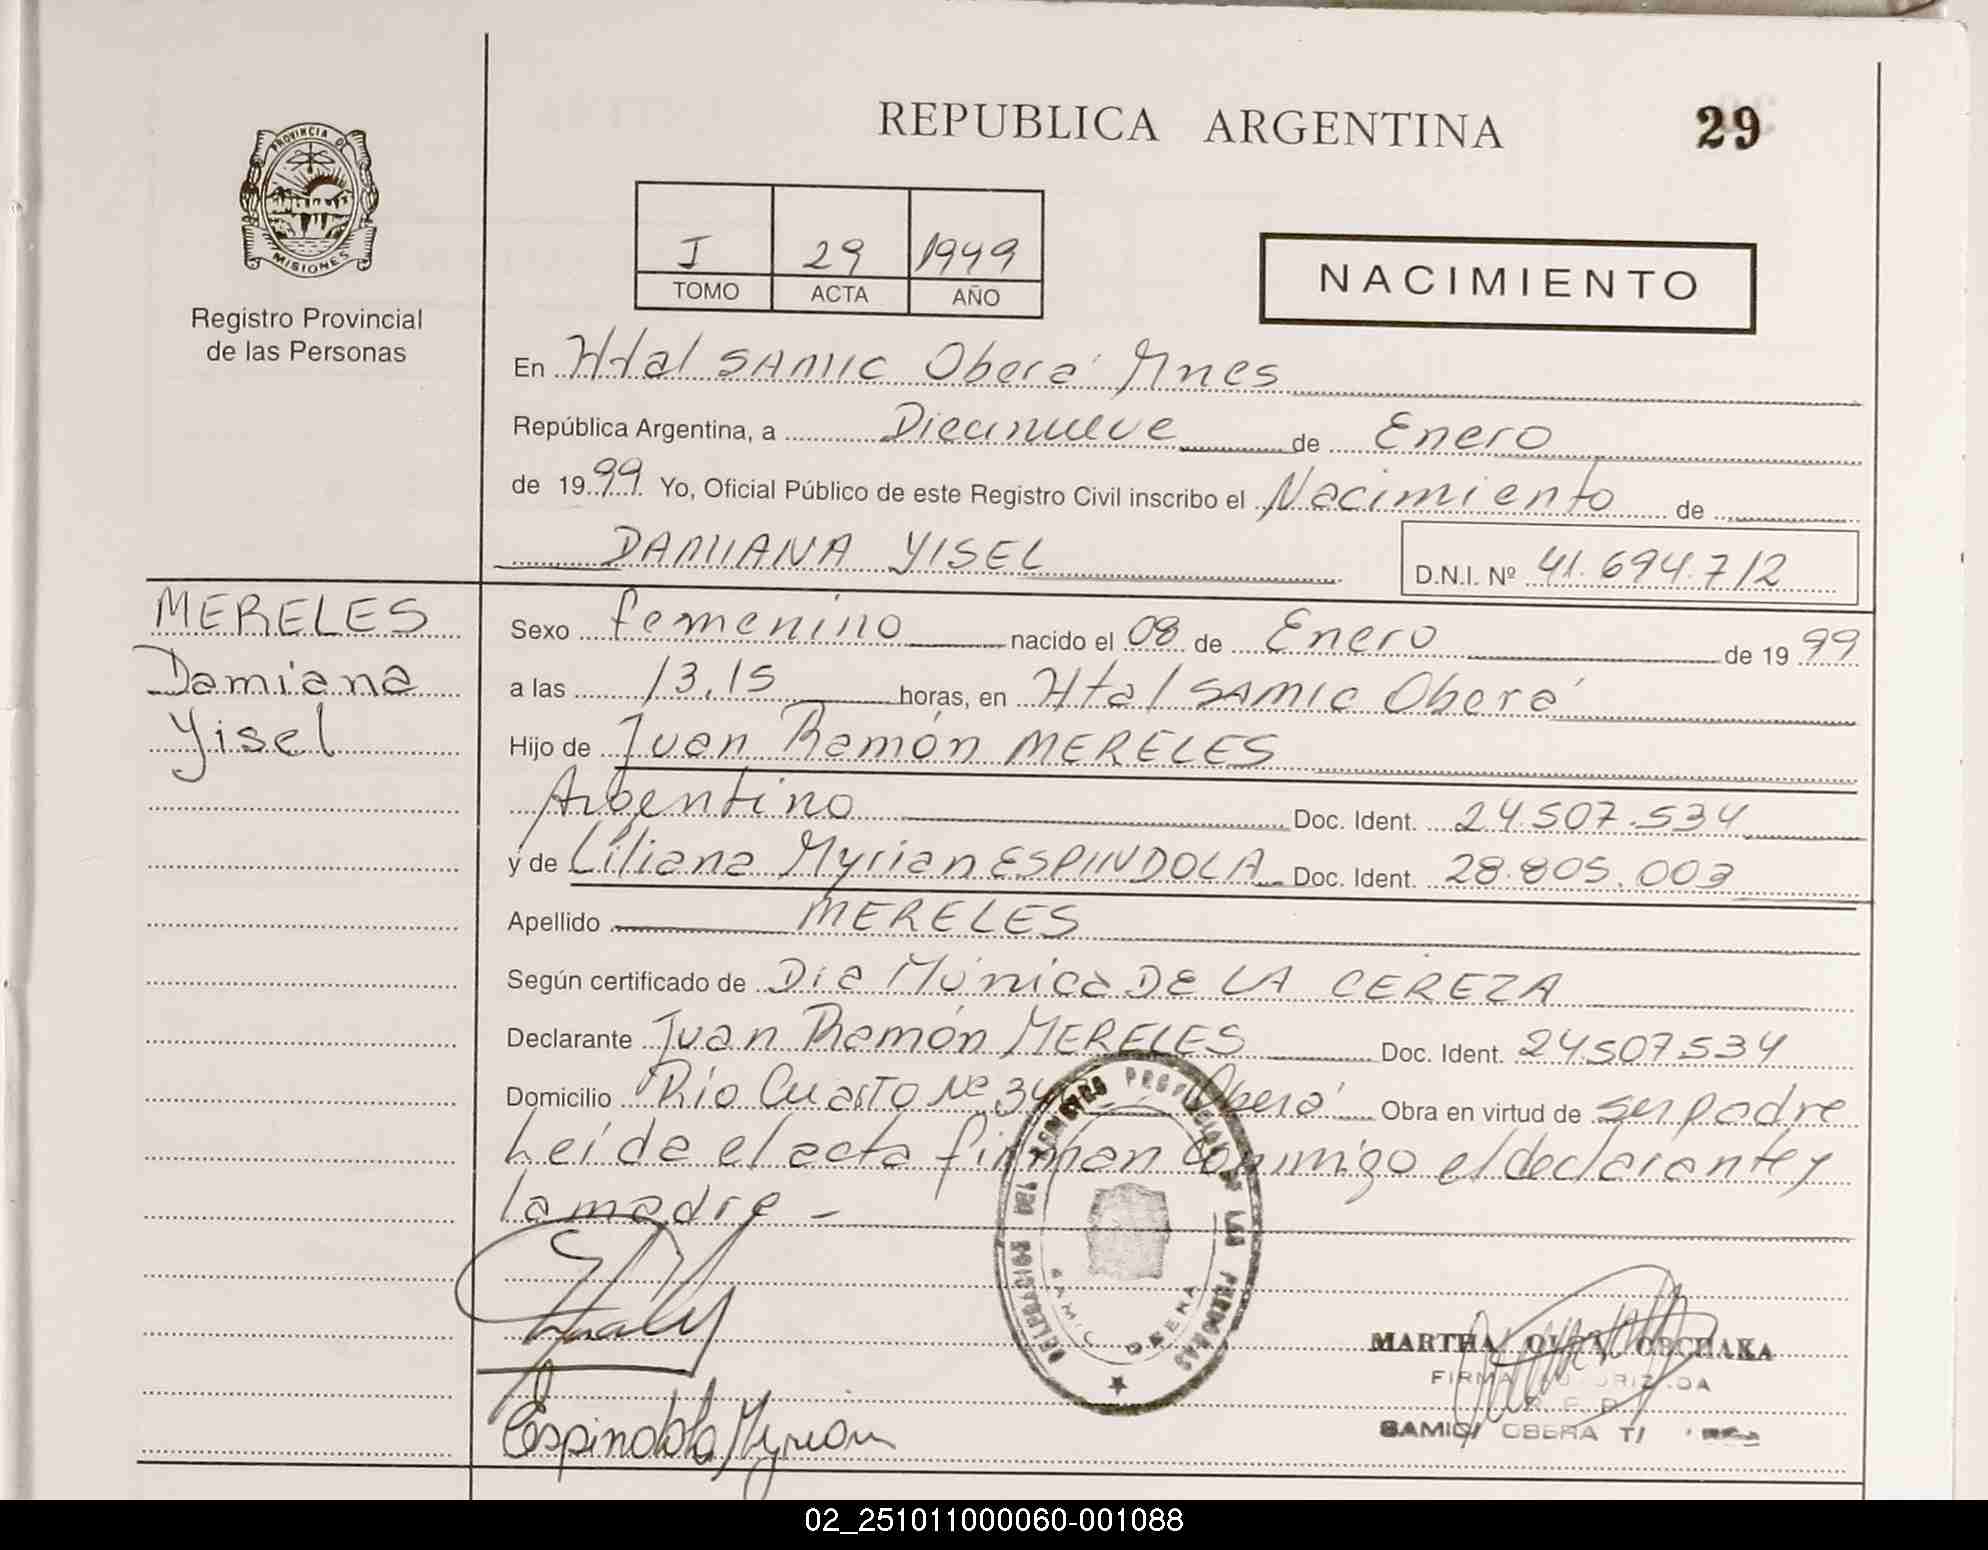 REPUBLICA ARGENTINA
29
PROVINCIA DE
MISIONES
Registro Provincial
de las Personas
I 29 1999
TOMO ACTA AÑO
NACIMIENTO
En Htal SAMIC Oberá Mnes
República Argentina, a Diecinueve de Enero
de 1999 Yo, Oficial Público de este Registro Civil inscribo el Nacimiento de
DAMIANA YISEL
D.N.I. Nº 41.694.712
MERELES
Damiana
Yisel
Sexo femenino nacido el 08 de Enero de 1999
a las 13.15 horas, en Htal SAMIC Oberá
Hijo de Juan Ramón MERELES
Argentino Doc. Ident. 24.507.534
y de Liliana Myrian ESPINDOLA Doc. Ident. 28.805.003
Apellido MERELES
Según certificado de Dra Mónica DE LA CEREZA
Declarante Juan Ramón MERELES Doc. Ident. 24.507.534
Domicilio Río Cuarto Nº 34 Oberá Obra en virtud de ser padre
Leída el acta firman conmigo el declarante y
la madre -
DELEGACION DEL REGISTRO PROVINCIAL DE LAS PERSONAS
SAMIC OBERA
MARTHA OLGA
FIRMA AUTORIZADA
R. P. P.
SAMIC/ OBERA
Espindola Myrian
02_251011000060-001088